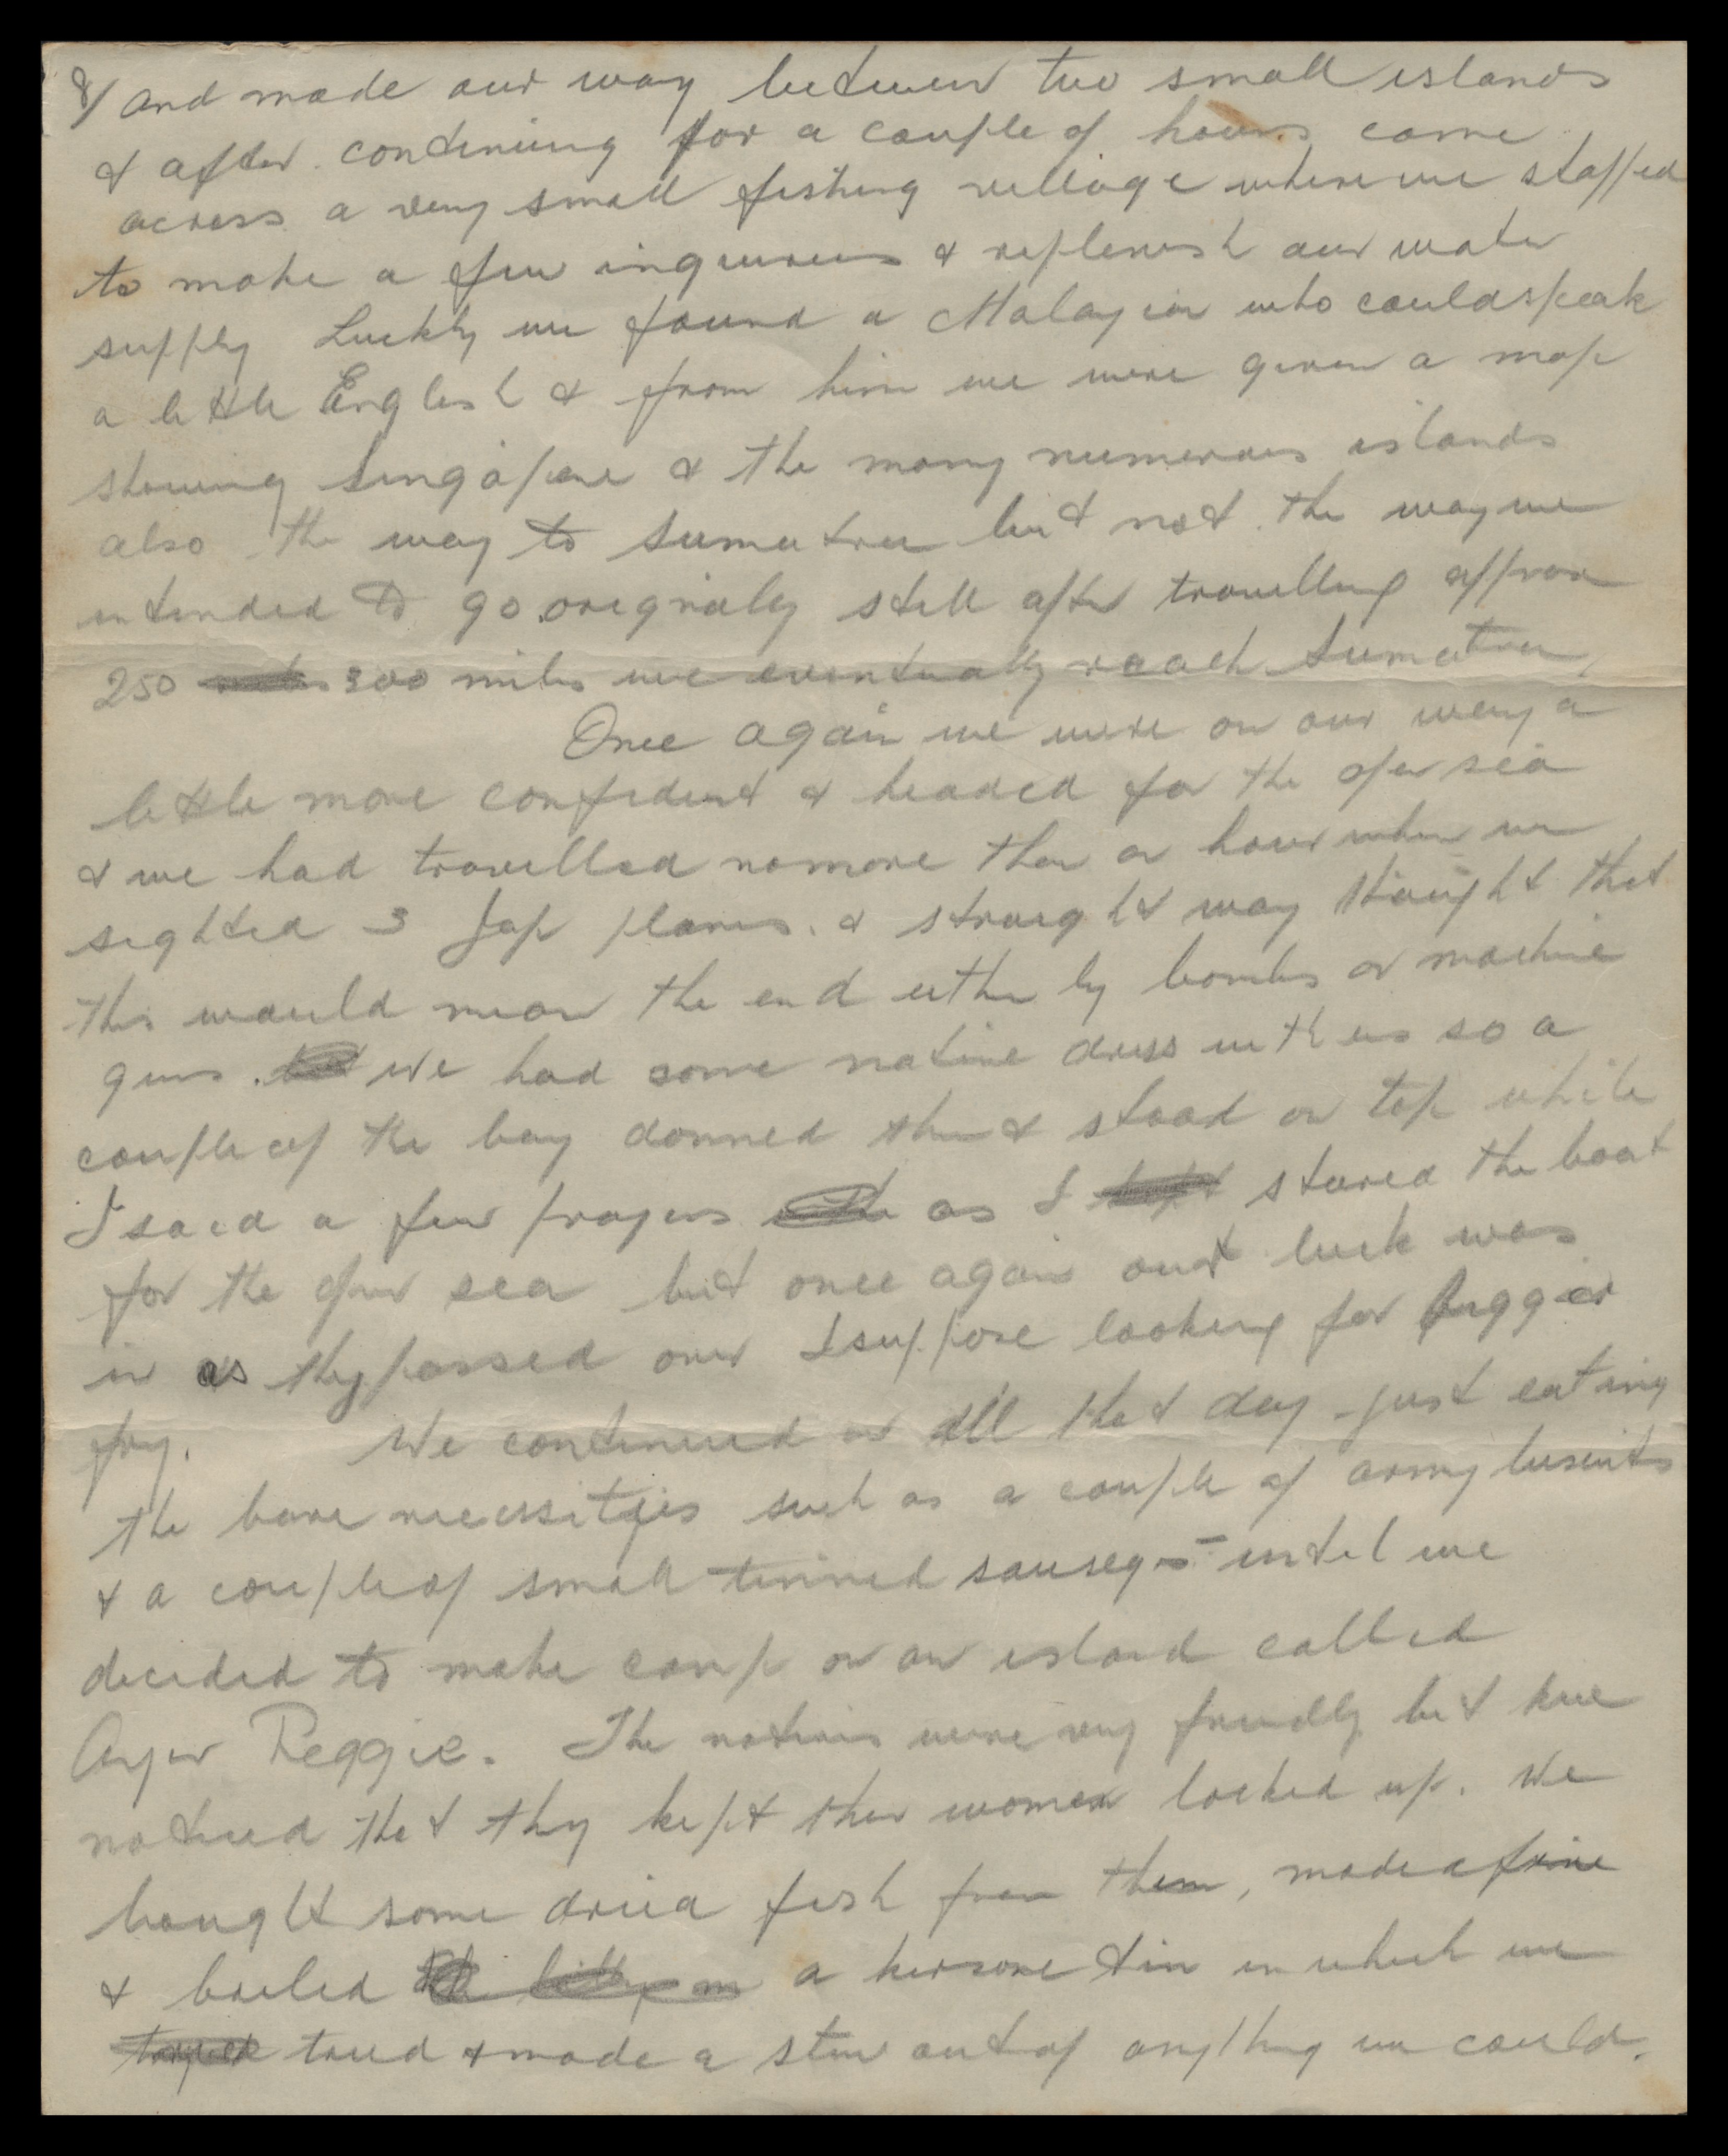 8/ and made our way between two small islands
& after continuing for a couple of hours came
across a very small fishing village where we stopped
to make a few inquiries & replenish our water
supply Luckly we found a Malayian who could speak
a little English & from him we were given a map
showing Singapore & the many numerous islands
also the way to Sumatra but not the way we
intended to go originaly still after travelling approx
250 300 miles we eventually reach Sumatra,
Once again we were on our way a
little more confident & headed for the open sea
& we had travelled nomore than an hour when we
sighted 3 Jap planes. & straight way thought that
this would mean the end either by bombs or machine
guns. We had some native dress with us so a
couple of the boy donned them & stood on top while
I said a few prayers as I steered the boat
for the open sea but once again our luck was
in as they passed over I suppose looking for bigger
fry. We continued on all that day just eating
the bare necessities such as a couple of army biscuits
& a couple of small tinned sauseges - until we
decided to make camp on an island called
Anger Reggie. The natives were very friendly but we
noticed that they kept their women locked up. We
bought some dried fish from them, made a fire
& boiled a kerosone tin in which we
tried & made a stew out of anything we could.